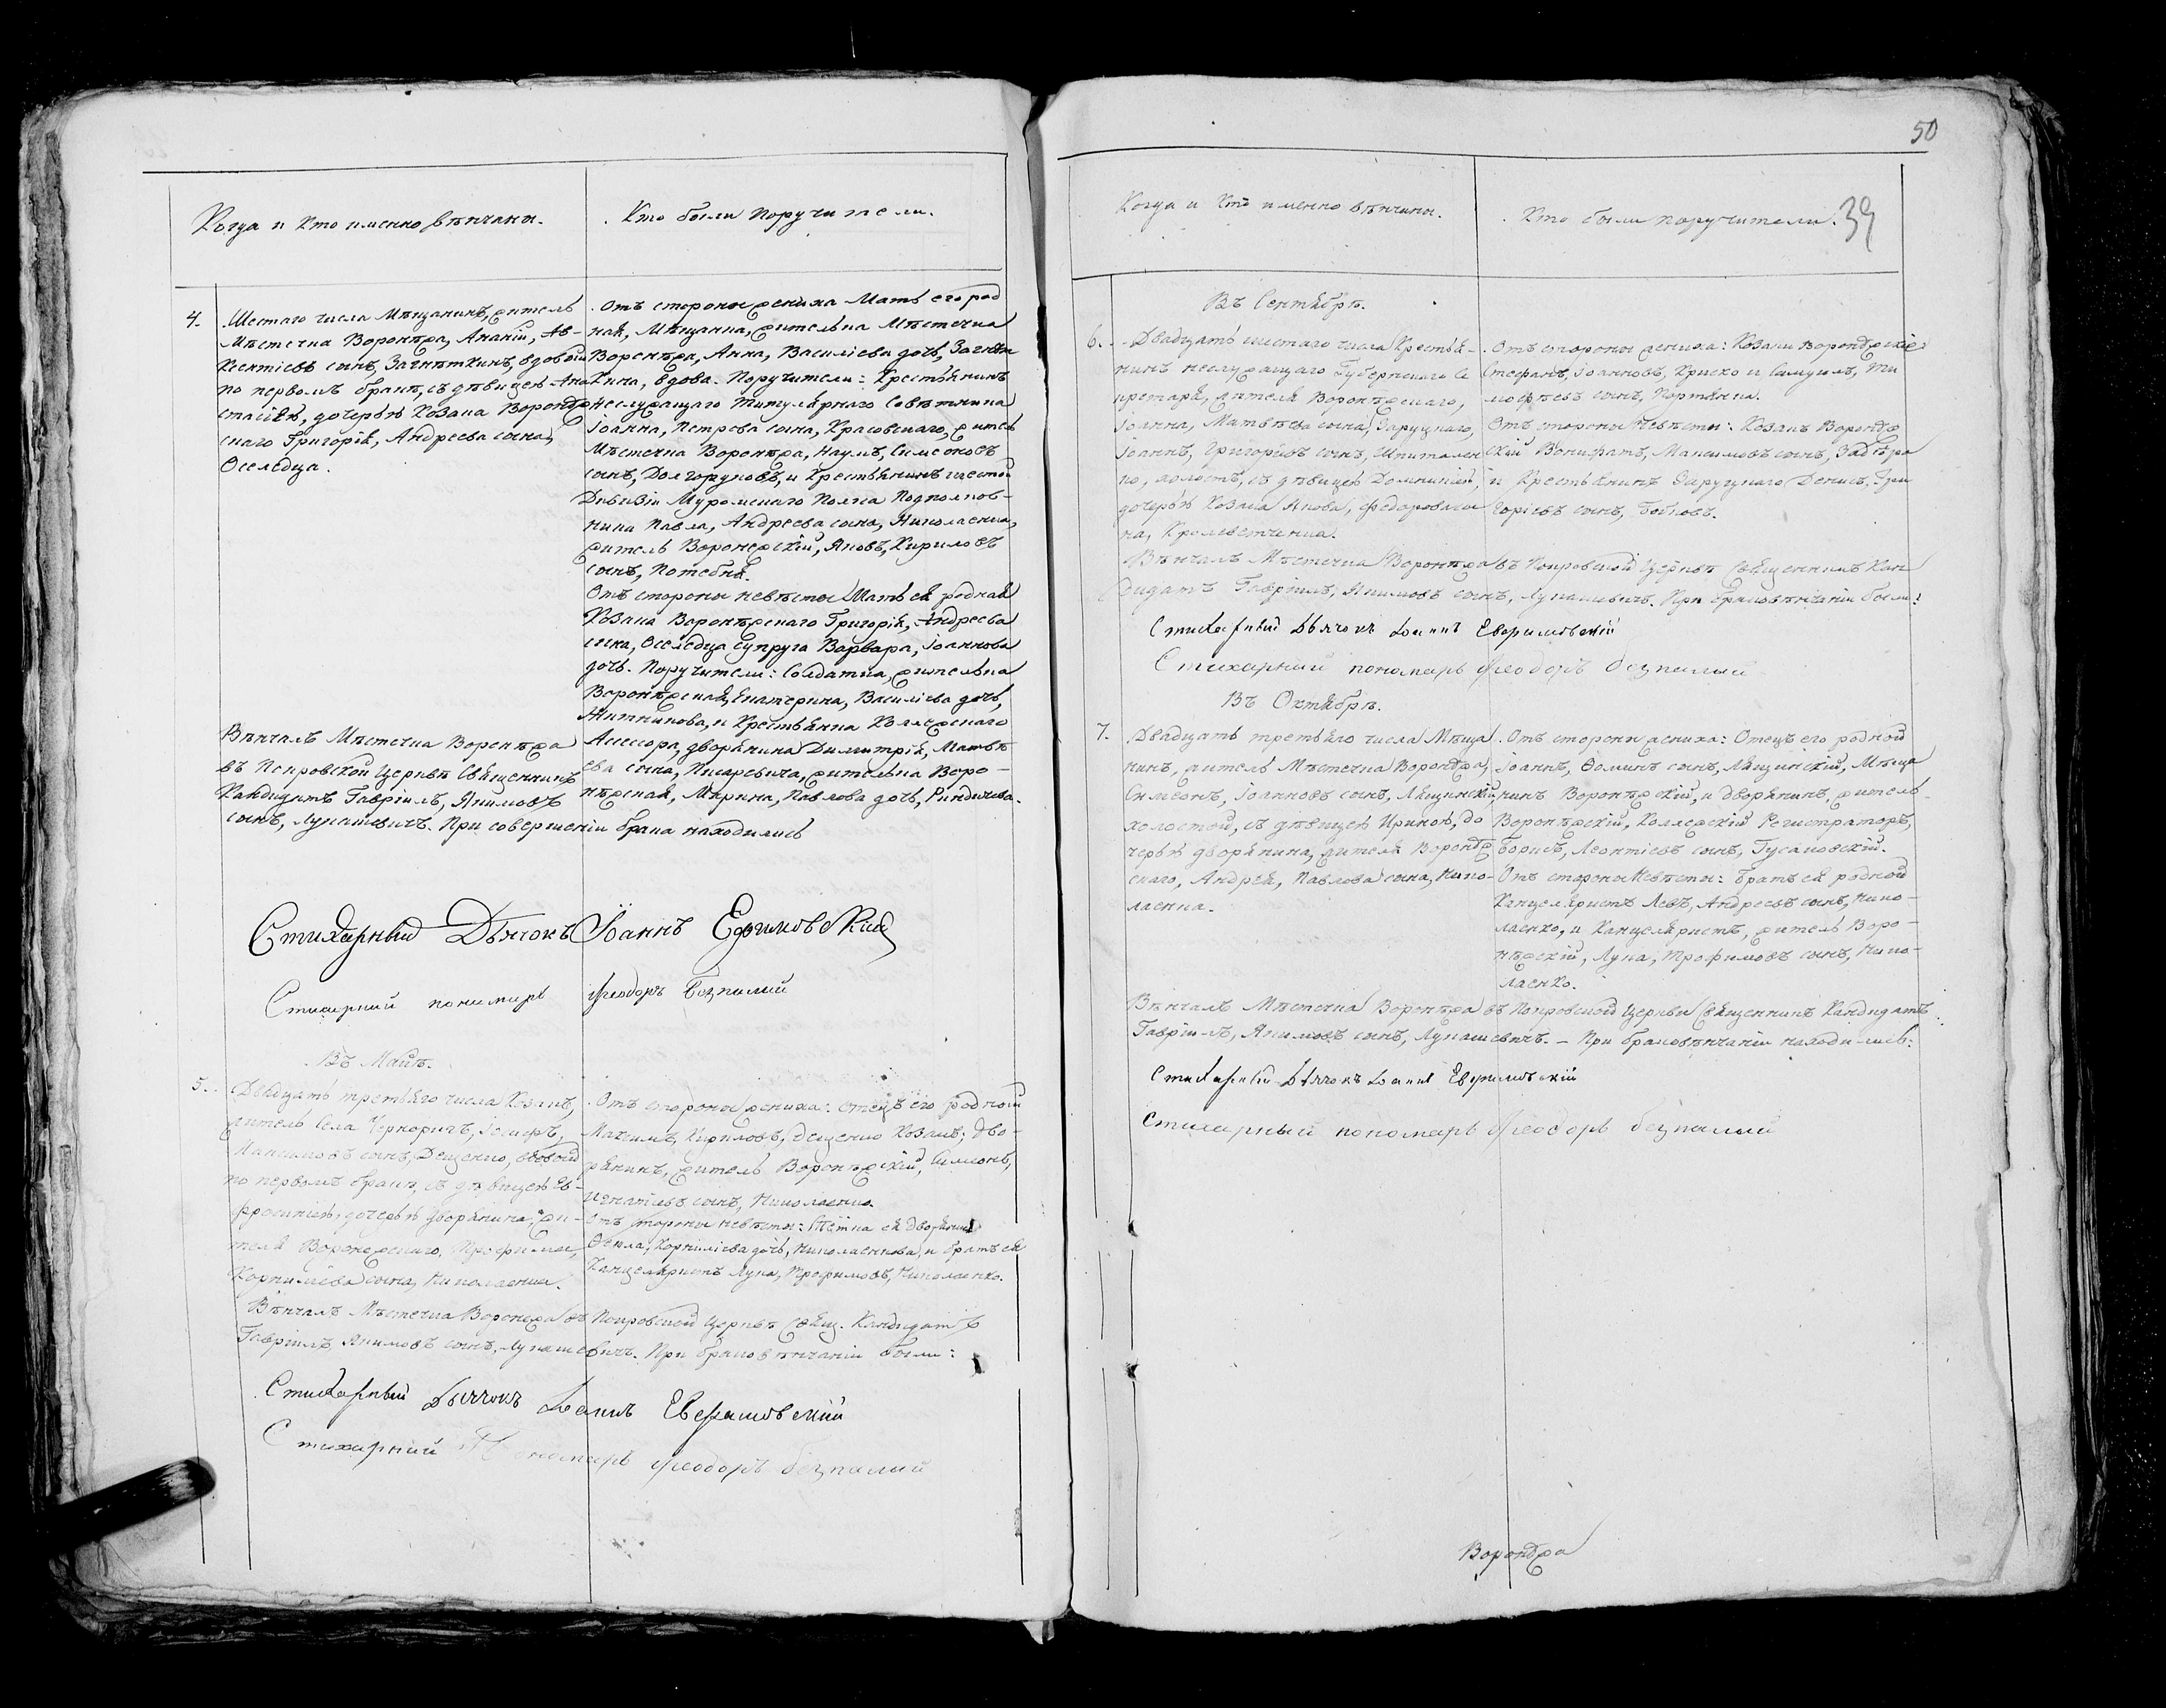 Когда и Кто именно вѣнчаны.
Кто были поручители.
4.
Шестаго числа Мѣщанинъ, житель
Мѣстечка Воронѣжа, Ананій, Ав-
ксентіевъ сынъ, вдовой
по первомъ бракѣ, съ дѣвицею Ана
стасіею, дочерью Козака Воронѣж
скаго Григорія, Андреева сына,
Оселедца.
Вѣнчалъ Мѣстечка Воронѣжа
въ Покровской Церквѣ Священникъ
Кандидатъ Гавріилъ, Якимовъ
сынъ, Лукашевичъ. При совершеніи брака находились
Отъ стороны жениха Мать его род
ная, Мѣщанка, жителька Мѣстечка
Воронѣжа, Анна, Василіева дочь,
вдова. Поручители: Крестьянинъ
неслужащаго Титулярнаго Совѣтника
Іоанна, Петрова сына, Красовскаго, житель
Мѣстечка Воронѣжа, Наумъ, Симеоновъ
сынъ, Долгоруковъ, и Крестьянинъ шестой
Дивизіи Муромскаго Полка Подполков-
ника Павла, Андреева сына, Николаенка,
житель Воронежскій, Яковъ, Кириловъ
сынъ, Потебня.
Отъ стороны невѣсты Мать ея родная
Козака Воронѣжскаго Григорія, Андреева
сына, Оселедца Супруга Варвара, Іоаннова
дочь. Поручители: Солдатка, жителька
Воронѣжская, Екатерина, Василіева дочь,
Житникова, и Крестьянка Коллежскаго
Асессора, дворянина Димитрія, Матвѣ
ева сына, Писаревича, жителька Воро-
нѣжская, Марина, Павлова дочь,
Стихарный Дьячокъ Іоаннъ Ефимовскій
Стихарній пономарь Феодоръ Безпалий
Въ Маіѣ.
5.
Двадцать третьяго числа Козакъ,
житель Села Черноричъ, Іосифъ,
Максимовъ сынъ, Дещенко, вдовой
по первомъ бракѣ, съ дѣвицею Ев-
фросиніею, дочерью дворянина, жи-
теля Воронежскаго, Трофима,
Корниліева сына, Николаенка.
Отъ стороны жениха: Отецъ его родной
Максимъ, Кириловъ, Дещенко Козакъ; Дво-
рянинъ, житель Воронѣжскій, Симеонъ,
Игнатіевъ сынъ, Николаенко.
Отъ стороны невѣсты: Тётка ея дворянка
Ѳекла, Корниліева дочь, Николаенкова, и братъ ея
Канцеляристъ Лука, Трофимовъ, Николаенко.
Вѣнчалъ Мѣстечка Воронежа въ Покровской Церквѣ Свящ. Кандидатъ
Гавріилъ, Якимовъ сынъ, Лукашевичъ. При браковѣнчаніи были:
Стихарный Дьячокъ Іоаннъ Евфимовскій
Стихарній Пономарь Феодоръ безпалий
50
Когда и Кто именно вѣнчаны.
Кто были поручители.
39
Въ Сентябрѣ.
6.
Двадцать шестаго числа Крестья-
нинъ неслужащаго Губернскаго Се
кретаря, жителя Воронѣжскаго,
Іоанна, Матвѣева сына, Заруцкаго,
Іоаннъ, Григоріевъ сынъ,
холостъ, съ дѣвицею Домникіею,
дочерью Козака Якова, Федорова сы
на, Кролеветченка.
Отъ стороны жениха: Козаки Воронѣжскіе
Стефанъ, Іоанновъ, Криско и Самуилъ, Ти
мофѣевъ сынъ, Портянка.
Отъ стороны Невѣсты: Козакъ Воронѣж
скій Вонифатъ, Максимовъ сынъ,
и Крестьянинъ Заруцкаго Денисъ, Гри
горіевъ сынъ, Бойковъ.
Вѣнчалъ Мѣстечка Воронѣжа въ Покровской Церквѣ Священникъ Кан
дидатъ Гавріилъ, Якимовъ сынъ, Лукашевичъ. При браковѣнчаніи были:
Стихарный Дьячокъ Іоаннъ Евфимовскій
Стихарний пономарь Феодоръ безпалий
Въ Октябрѣ.
7.
Двадцать третьяго числа Мѣща
нинъ, житель Мѣстечка Воронѣжа,
Симеонъ, Іоанновъ сынъ, Лящинскій,
холостой, съ дѣвицею Ириною, до
черью дворянина, жителя Воронѣж
скаго, Андрея, Павлова сына, Нико-
лаенка.
Отъ стороны жениха: Отецъ его родной
Іоаннъ, Ѳоминъ сынъ, Лящинскій, Мѣща
нинъ Воронѣжскій, и дворянинъ, житель
Воронѣжскій, Коллежскій Регистраторъ,
Борисъ, Леонтіевъ сынъ, Гусаковскій.
Отъ стороны Невѣсты: братъ ея родной
Канцеляристъ Левъ, Андреевъ сынъ, Нико-
лаенко, и Канцеляристъ, житель Воро-
нѣжскій, Лука, Трофимовъ сынъ, Нико-
лаенко.
Вѣнчалъ Мѣстечка Воронѣжа въ Покровской Церкви Священникъ Кандидатъ
Гавріилъ, Якимовъ сынъ, Лукашевичъ. – При браковѣнчаніи находились:
Стихарный Дьячокъ Іоаннъ Евфимовскій
Стихарный пономарь Феодоръ безпалий
Воронѣжа